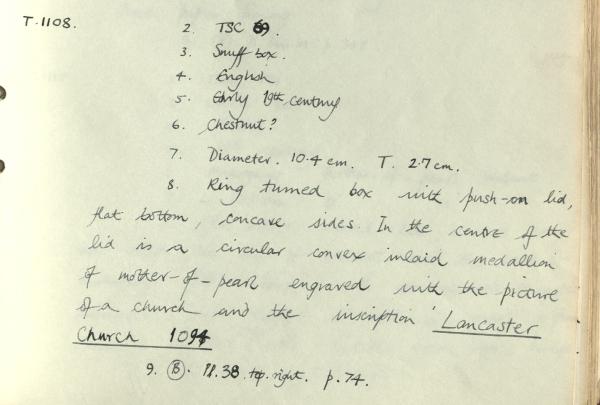 T.1108.
2. TSC 69.
3. Snuff box.
4. English
5. Early 19th century
6. Chestnut?
7. Diameter. 10.4 cm. T. 2.7 cm.
8. Ring turned box with push-on lid,
flat bottom, concave sides. In the centre of the
lid is a circular convex inlaid medallion
of mother-of-pearl engraved with the picture
of a church and the inscription ' Lancaster
Church 1094
9. (B). Pl. 38. top. right. p. 74.